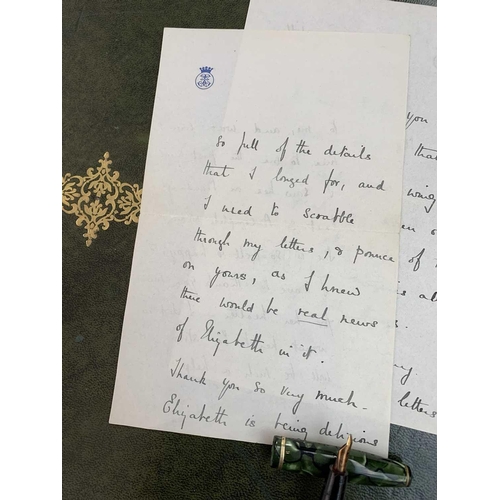 so full of the details
that I longed for, and
I used to scrabble
through my letters, & pounce
on yours, as I knew
there would be real news
of Elizabeth in it.
Thank you so very much.
Elizabeth is being delicious
you
that
wing
of
letters